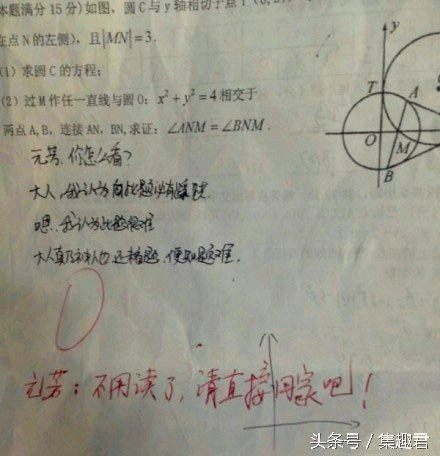 本题满分15分)如图,圆C与y轴相切于点T(0,2
在点N的左侧),且|MN|=3.
(1)求圆C的方程;
(2)过M作任一直线与圆O:x²+y²=4相交于
两点A,B,连接AN,BN,求证:∠ANM=∠BNM.
y
T
A
O
M
B
元芳,你怎么看?
大人,我认为此题
嗯,我认为此题很难
大人真乃神人也
元芳:不用读了,请直接回家吧!
头条号/集趣君